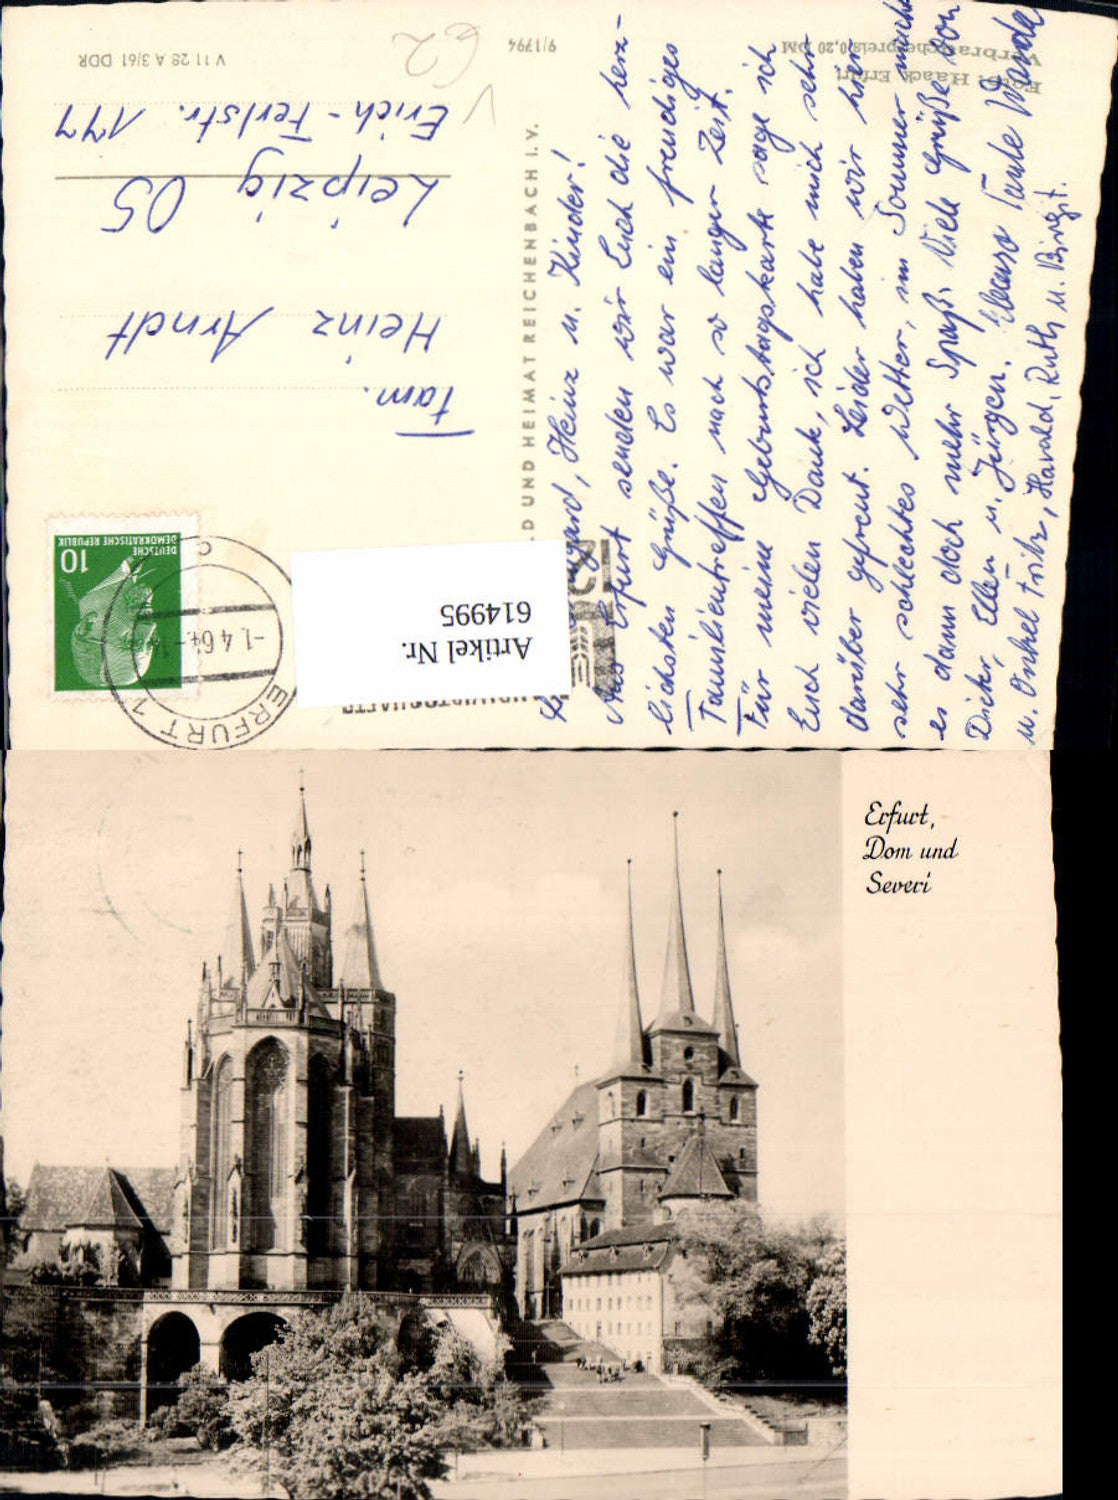 Liebe [...]gard, Heinz u. Kinder!
Aus Erfurt senden wir Euch die herz-
lichsten Grüße. Es war ein freudiges
Familientreffen nach so langer Zeit.
Für meine Geburtstagskarte sage ich
Euch vielen Dank, ich habe mich sehr
darüber gefreut. Leider haben wir hier
sehr schlechtes Wetter, im Sommer macht
es dann doch mehr Spaß. Viele Grüße von
Dieter, Ellen u. Jürgen. Ebenso Tante Wanda
u. Onkel Fritz, Harald, Ruth u. Birgit.
Foto: Haack Erfurt
Verbraucherpreis 0,20 DM
9/1794
V 11 28 A 3/61 DDR
D UND HEIMAT REICHENBACH I. V.
62
Fam.
Heinz Arndt
Leipzig O5
Erich-Ferlstr. 177
DEUTSCHE
DEMOKRATISCHE REPUBLIK
10
ERFURT 1
-1.4.64
Artikel Nr.
614995
Erfurt,
Dom und
Severi